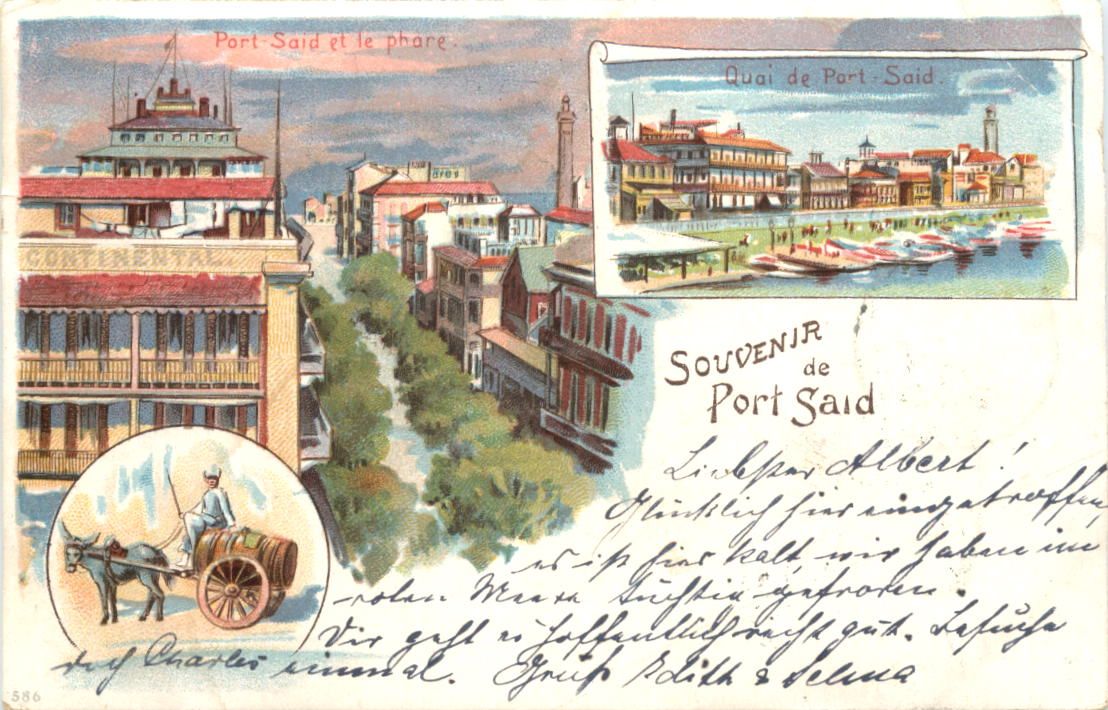 Port-Said et le phare.
Quai de Port-Said.
CONTINENTAL
SOUVENIR
de
Port Said
Liebster Albert!
Glücklich hier eingetroffen,
es ist hier kalt, wir haben im
roten Meere tüchtig gefroren.
Dir geht es hoffentlich recht gut. Besuche
doch Charles einmal. Gruß Edith & Selma
586